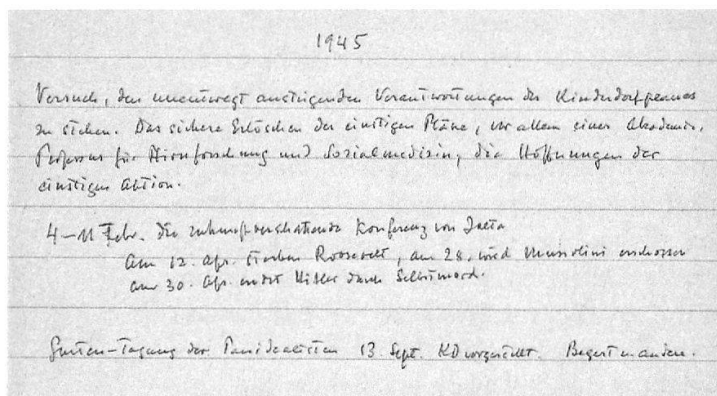 1945
Versuch, den unentwegt ansteigenden Verantwortungen des Kinderdorfplanes
zu stehen. Das sichere Erlöschen der einstigen Pläne, vor allem einer Akademie,
Professur für Hirnforschung und Sozialmedizin, die Hoffnungen der
einstigen Aktion.
4–11 Febr. die zukunftverschattende Konferenz von Jalta
Am 12. Apr. sterben Roosevelt, am 28. wird Mussolini erschossen
am 30. Apr. endet Hitler durch Selbstmord.
Gunten-Tagung der 13 Sept. KD vorgestellt.